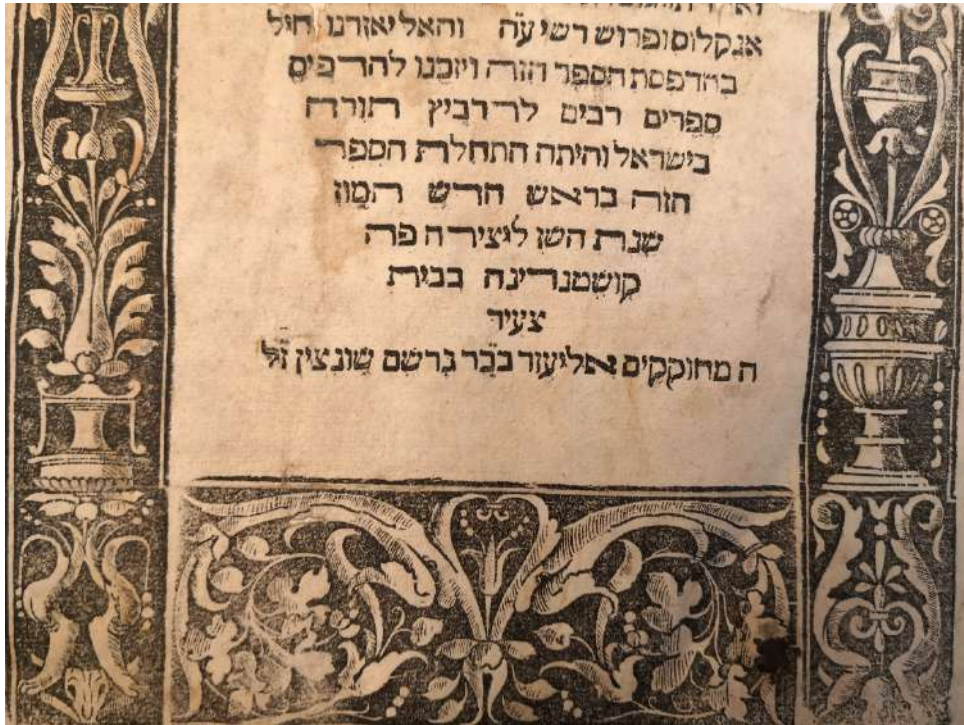 אנקלוס ופרוש רשי ע״ה והאל יאזרנו חיל
בהדפסת הספר הזה ויזכנו להדפיס
ספרים רבים להרביץ תורה
בישראל והיתה התחלת הספר
הזה בראש חדש תמוז
שנת השו ליצירה פה
קושטנדינה בבית
צעיר
ה מחוקקים אליעזר בכ״ר גרשם שונצין ז״ל